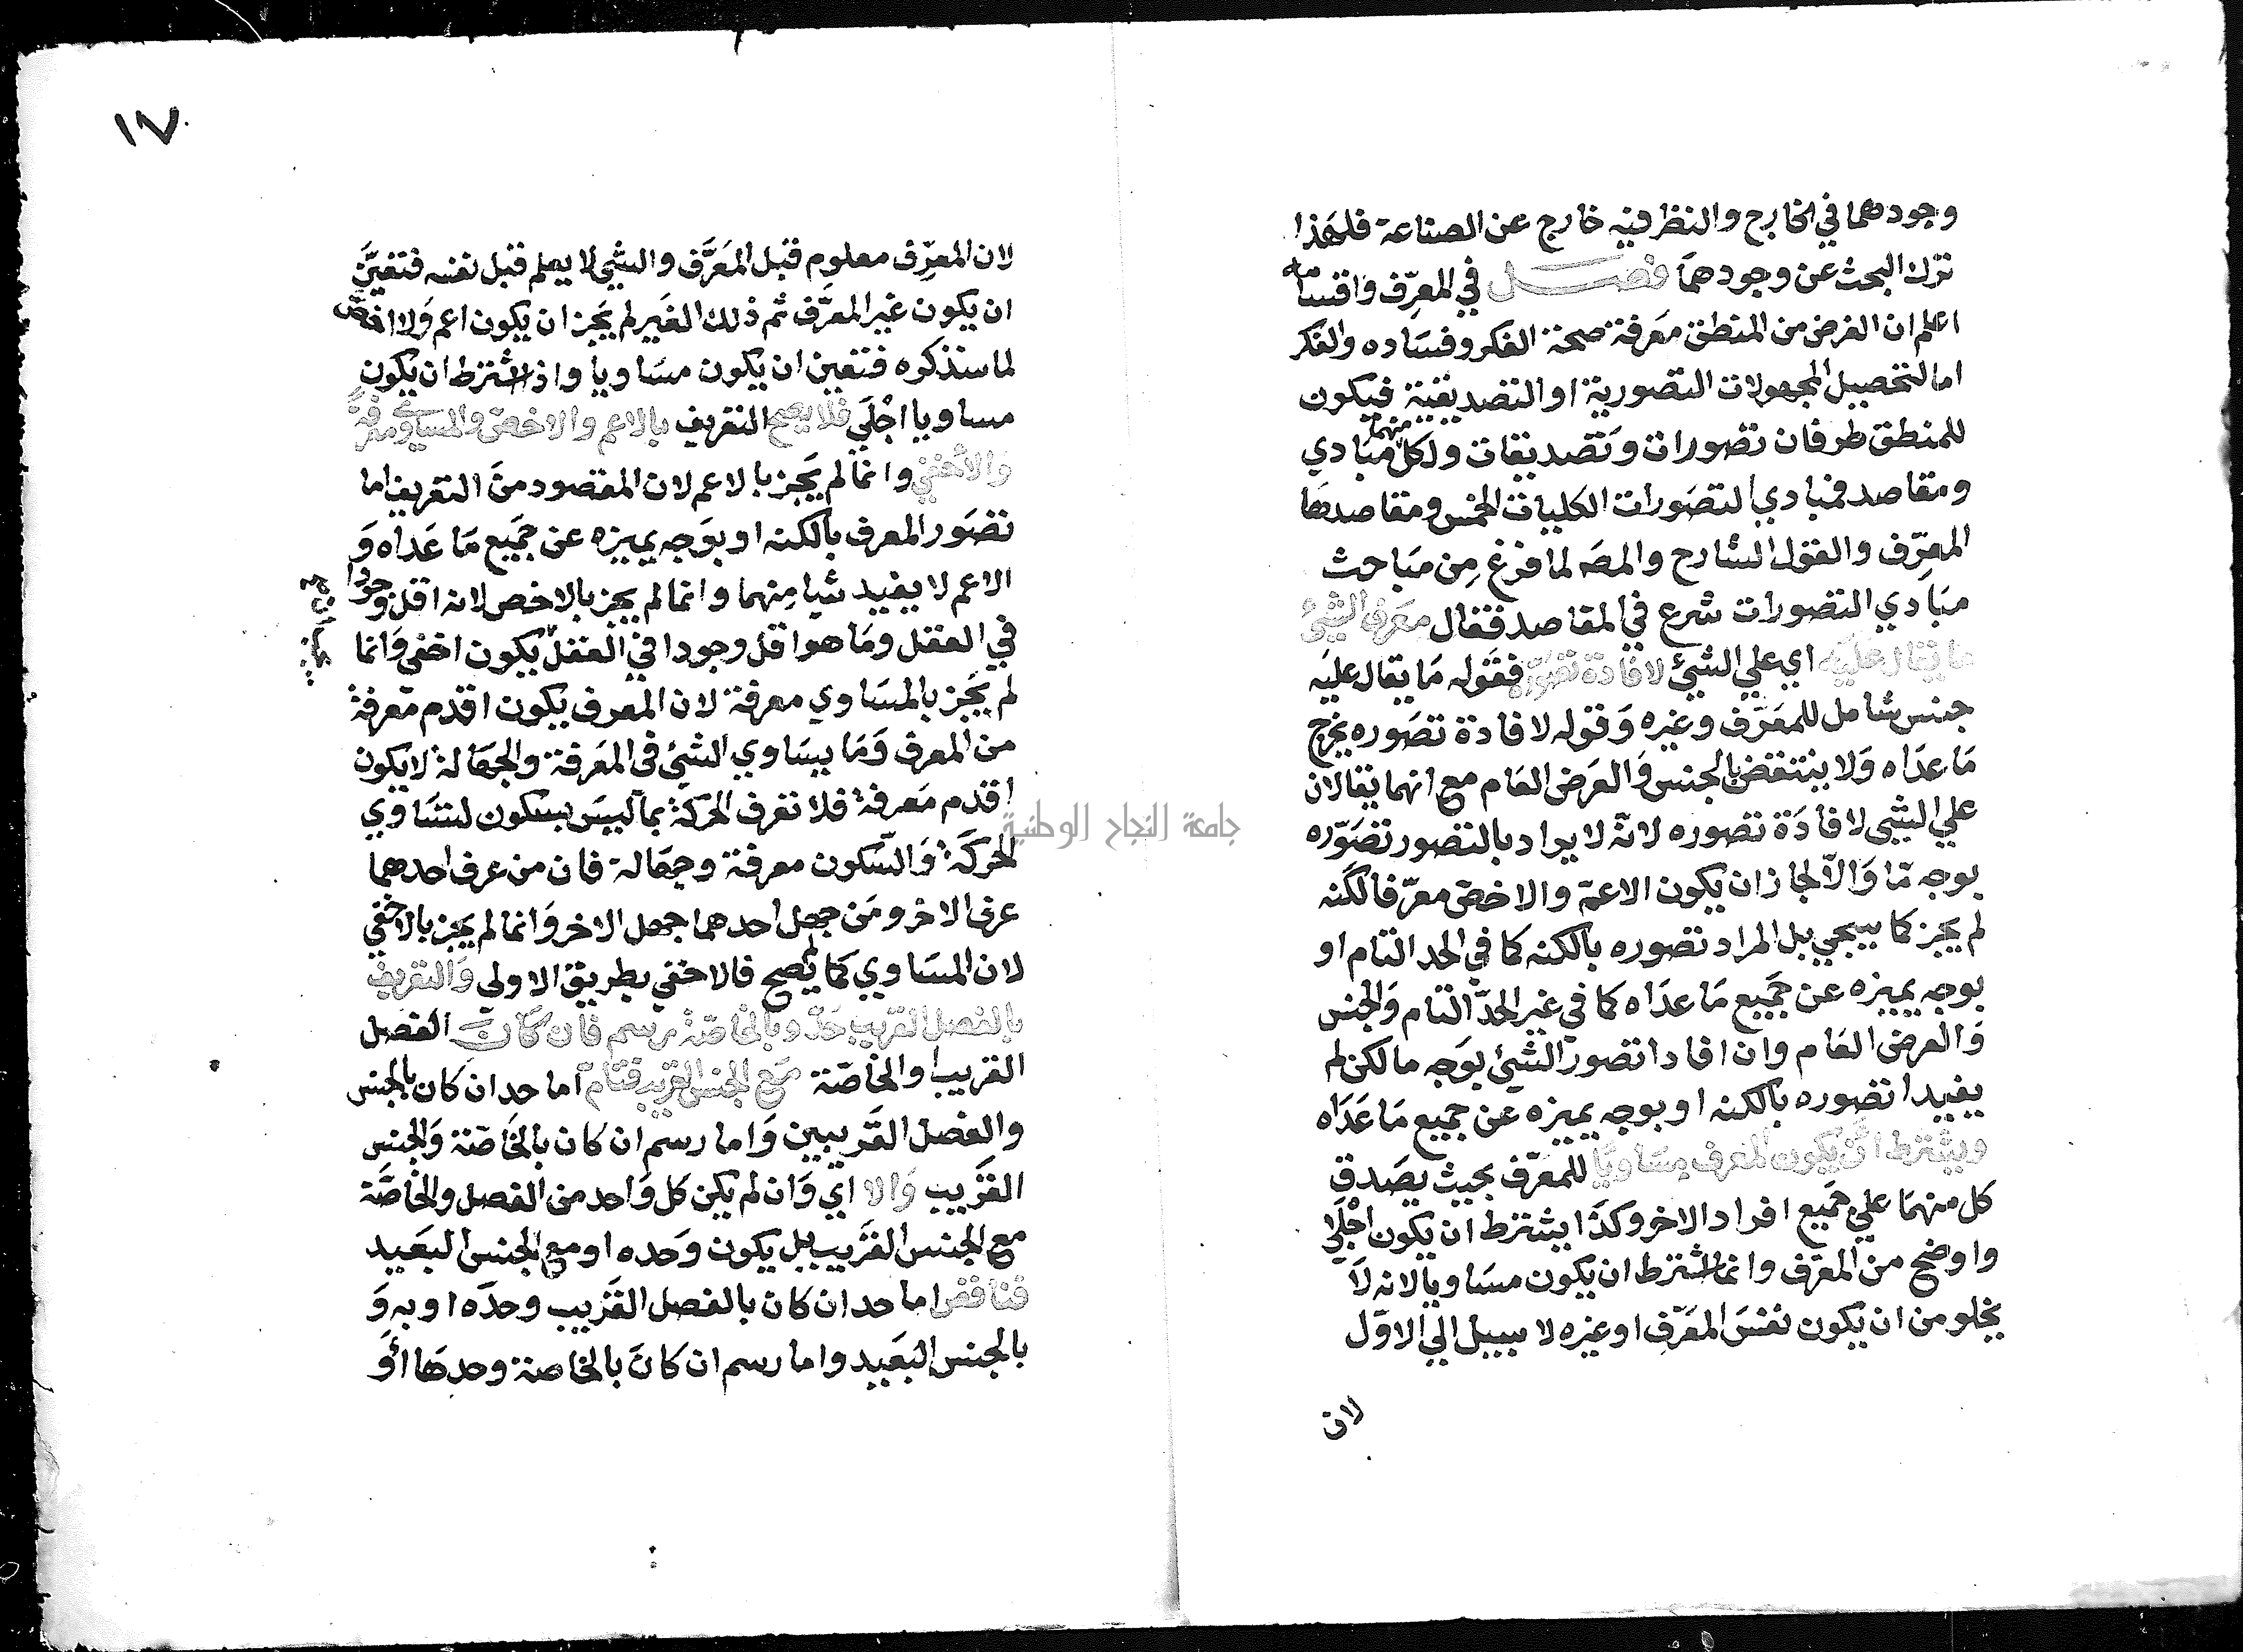 وجودهما في الخارج والنظر فيه خارج عن الصناعة فلهذا
ترك البحث عن وجودهما فصل في المعرّف واقسامه
اعلم ان الغرض من المنطق معرفة صحة الفكر وفساده والفكر
اما لتحصيل المجهولات التصورية او التصديقية فيكون
للمنطق طرفان تصورات وتصديقات ولكل منهما مبادي
ومقاصد فمبادي التصورات الكليات الخمس ومقاصدها
المعرّف والقول الشارح والمصه لما فرغ من مباحث
مبادي التصورات شرع في المقاصد فقال معرف الشيئ
ما يقال عليه اي علي الشيئ لافادة تصوره فقوله ما يقال عليه
جنس شامل للمعرّف وغيره وقوله لافادة تصوره يخرج
ما عداه ولا ينتقض بالجنس والعرض العام مع انهما يقالان
علي الشيئ لافادة تصوره لانه لا يراد بالتصور تصوّره
بوجه ما والّا لجاز ان يكون الاعمّ والاخصّ معرّفا لكنه
لم يجز كما سيجي بل المراد تصوره بالكنه كما في الحد التام او
بوجه يميزه عن جميع ما عداه كما في غير الحدّ التام والجنس
والعرض العام وان افادا تصور الشيئ بوجه ما لكن لم
يفيدا تصوره بالكنه او بوجه يميزه عن جميع ما عداه
ويشترط ان يكون المعرف مساويا للمعرّف بحيث يصدق
كل منهما علي جميع افراد الاخر وكذا يشترط ان يكون اجلي
واوضح من المعرّف وانما اشترط ان يكون مساويا لانه لا
يخلو من ان يكون نفس المعرّف او غيره لا سبيل الي الاوّل
لان
١٧
لان المعرِّف معلوم قبل المعرَّف والشيئ لا يعلم قبل نفسه فتعيّن
ان يكون غير المعرَّف ثم ذلك الغير لم يجز ان يكون اعم ولا اخصّ
لما سنذكره فتعين ان يكون مساويا واذا اشترط ان يكون
مساويا اجلي فلا يصح التعريف بالاعم والاخصّ والمساوي معرفة
والاخفي وانما لم يجز بالاعم لان المقصود من التعريف اما
تصور المعرف بالكنه او بوجه يميزه عن جميع ما عداه و
الاعم لا يفيد شيا منهما وانما لم يجز بالاخص لانه اقل وجودا
في العقل وما هو اقل وجودا في العقل يكون اخفي وانما
لم يجز بالمساوي معرفة لان المعرف يكون اقدم معرفة
من المعرف وما يساوي الشيئ في المعرفة والجهالة لا يكون
اقدم معرفة فلا تعرف الحركة بما ليس بسكون لتساوي
الحركة والسكون معرفة وجهالة فان من عرف احدهما
عرف الاخر ومن جهل احدهما جهل الاخر وانما لم يجز بالاخفي
لان المساوي كما لم يصح فالاخفي بطريق الاولي والتعريف
بالفصل القريب حدّ وبالخاصة رسم فان كان الفصل
القريب او الخاصة مع الجنس القريب فتام اما حد ان كان بالجنس
والفصل القريبين واما رسم ان كان بالخاصة والجنس
القريب والا اي وان لم يكن كل واحد من الفصل والخاصّة
مع الجنس القريب بل يكون وحده او مع الجنس البعيد
فناقص اما حد ان كان بالفصل القريب وحده او به و
بالجنس البعيد واما رسم ان كان بالخاصة وحدها او
جامعة النجاح الوطنية